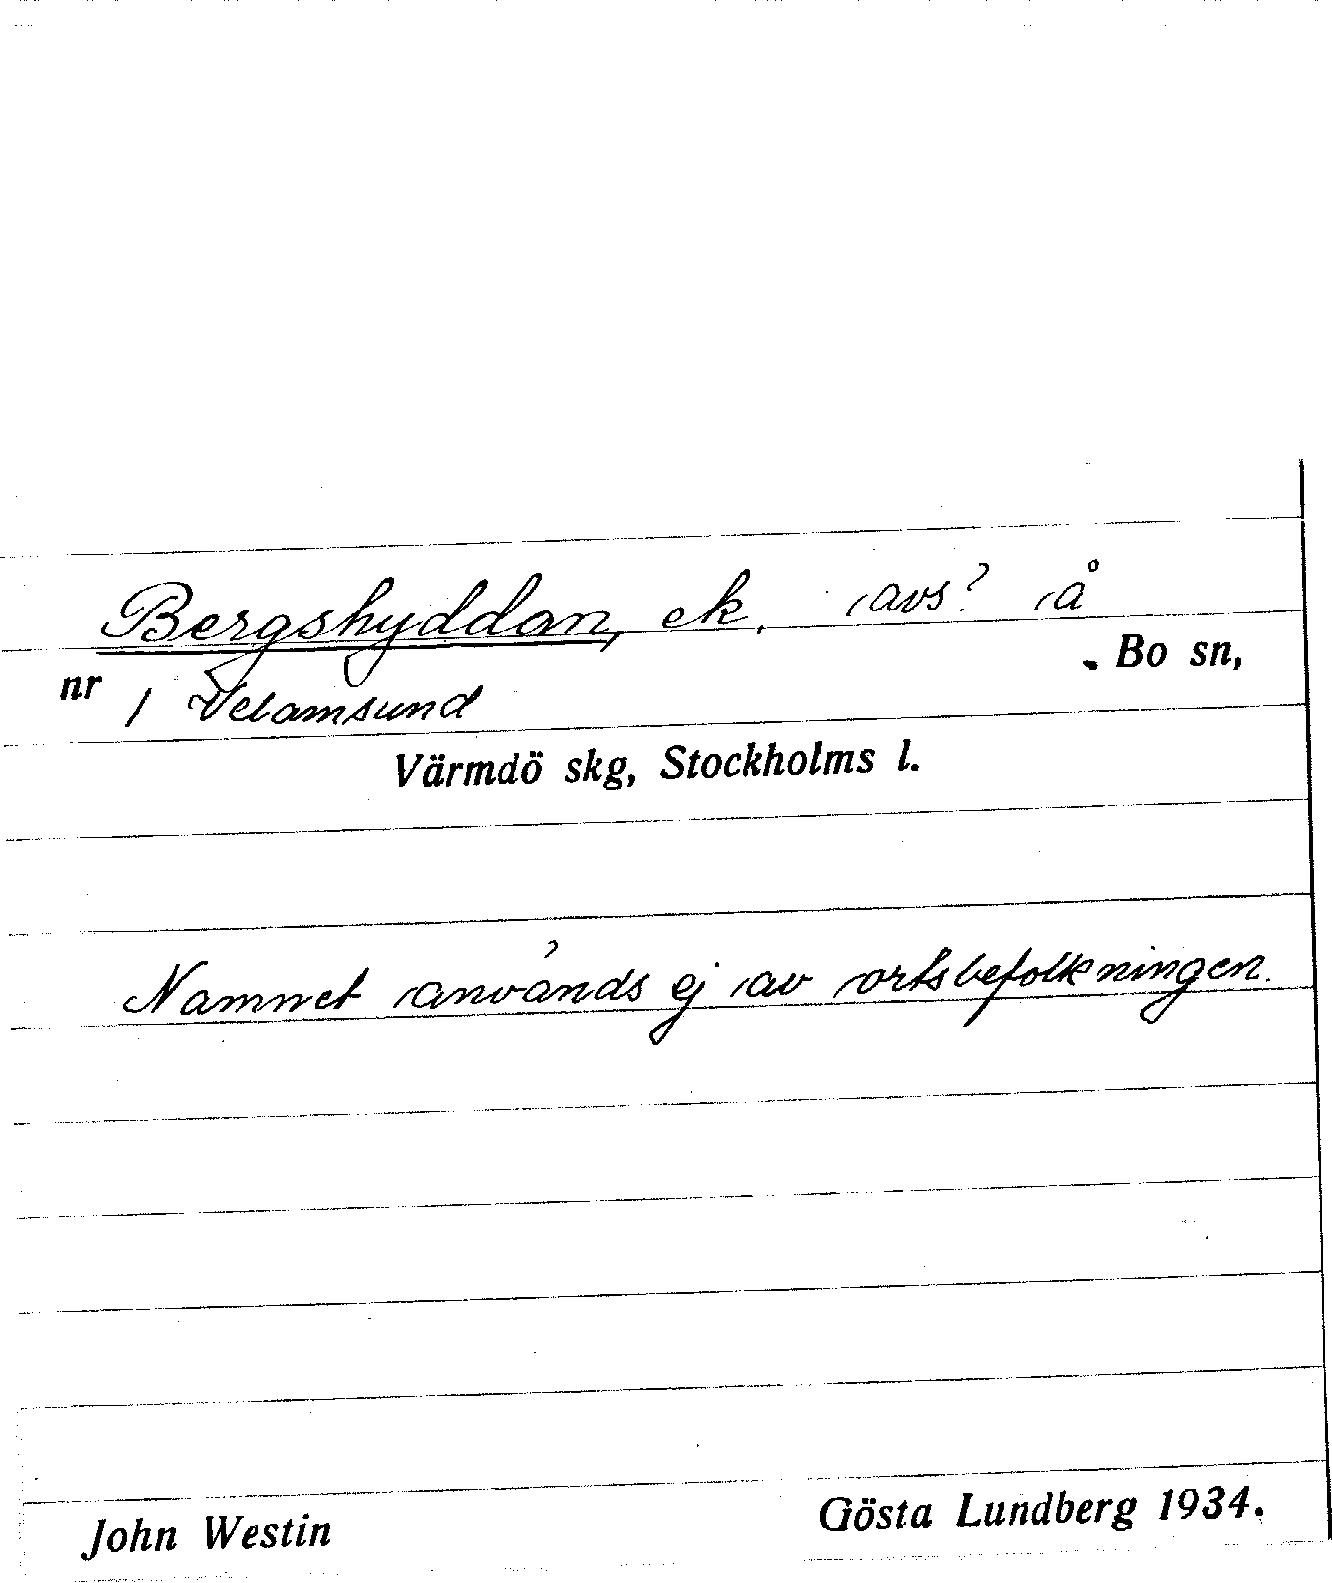 Bergshyddan, ek. avs? å
Bo sn,
nr 1 Velamsund
Värmdö skg, Stockholms l.
Namnet används ej av ortsbefolkningen.
John Westin Gösta Lundberg 1934.